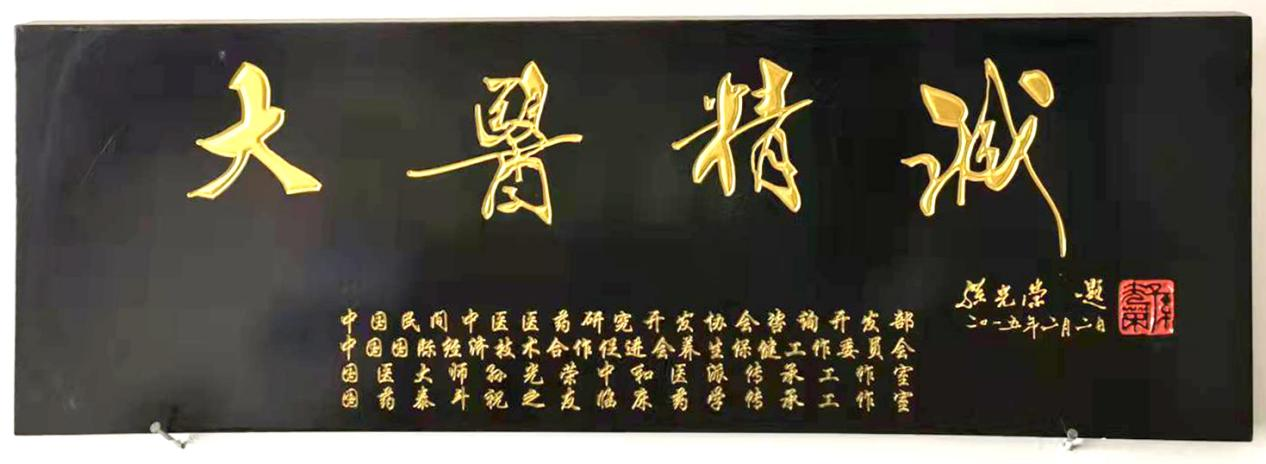 大醫精诚
孙光荣 题
二〇一五年二月二日
中国民间中医医药研究开发协会咨询开发部
中国国际经济技术合作促进会养生保健工作委员会
国医大师孙光荣中和医派传承工作室
国医药泰斗祝之友临床药学传承工作室
孙光荣